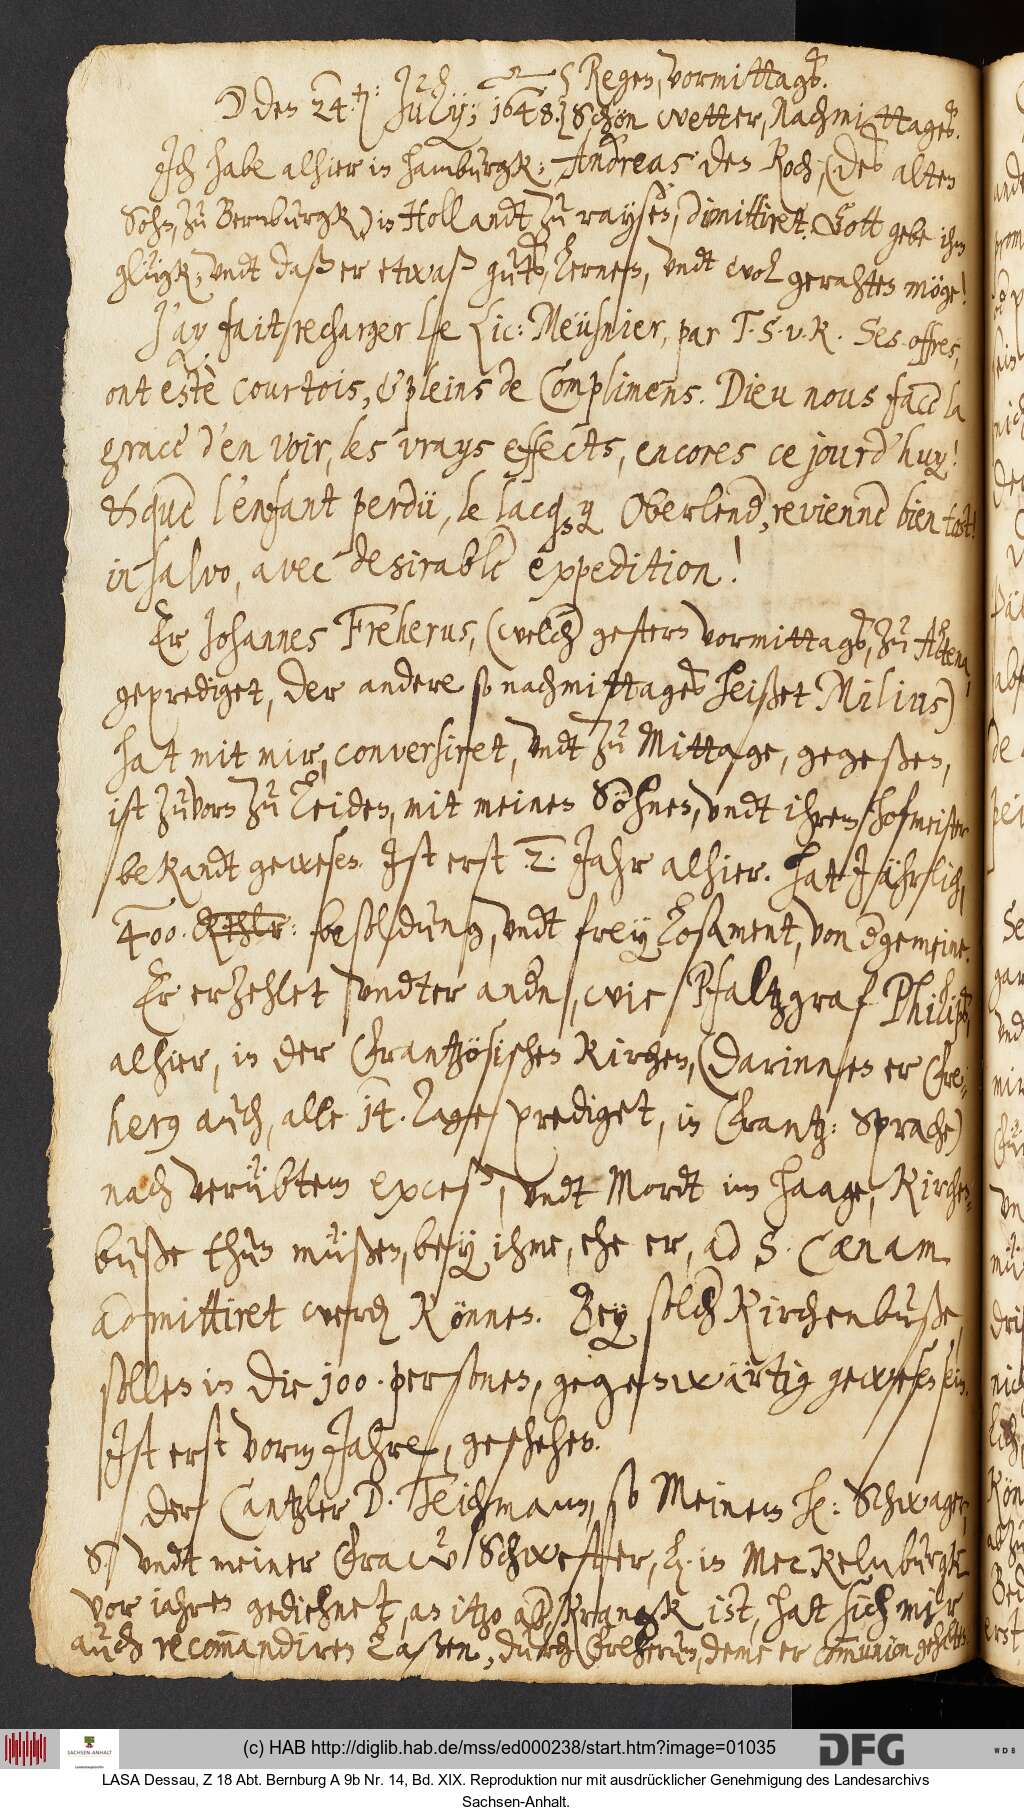 ☽ den 24.: July; 1648. { Regen, vormittags.
Schön wetter, Nachmittages.
Ich habe alhier in hamburgk, Andreas den Koch, (des alten
Sohn, zu Bernburgk) in Hollandt zu raysen, dimittiret. Gott gebe ihm
glügk, vndt daß er etwaß guts, lernen, vndt wol gerahten möge!
J'ay fait recharger le Lic: Meüsnier, par T. S. v. R. Ses offres,
ont estè courtois, & pleins de Complimens. Dieu nous face la
grace d'en voir, les vrays effects, encores ce jourd'huy!
& que l'enfant perdü, le lacquay Oberlender, revienne bien tost!
in salvo, avec desirable expedition!
Er Johannes Freherus, (welcher gestern vormittags, zu Altena,
geprediget, der andere so nachmittages heißet Milius)
hat mit mir, conversiret, vndt zu Mittage, gegeßen,
ist zuvorn zu Leiden, mit meinen Söhnen, vndt ihrem hofmeister
bekandt gewesen. Ist erst 2. Jahr alhier. hat Jährlich,
400. Rthlr: besoldung, vndt frey Losament, von der gemeine.
Er erzehlet vndter andern, wie Pfaltzgraf Philips,
alhier, in der Frantzösischen Kirchen, (darinnen er Fre¬
herus auch, alle 14. Tage prediget, in Frantz: Sprache)
nach verübtem exceß, vndt Mordt im Haage, Kirchen¬
buße thun müßen, bey ihme, ehe er, ad S. Cænam
admittiret werden können. Bey solcher Kirchenbuße,
sollen in die 100. personen, gegenwärtig gewesen sein.
Ist erst vorm Jahre, geschehen.
Der Cantzler D. Teichmann, so Meinem h: Schwager,
S. vndt meiner Fraw Schwester, h. in Meckelnburgk
vor jahren gedienet, an itzo aber krangk ist, hat sich mir
auch recommandiren laßen, durch Freherum, deme er communion gehalten
(c) HAB http://diglib.hab.de/mss/ed000238/start.htm?image=01035
SACHSEN-ANHALT
DFG
WDB
LASA Dessau, Z 18 Abt. Bernburg A 9b Nr. 14, Bd. XIX. Reproduktion nur mit ausdrücklicher Genehmigung des Landesarchivs
Sachsen-Anhalt.